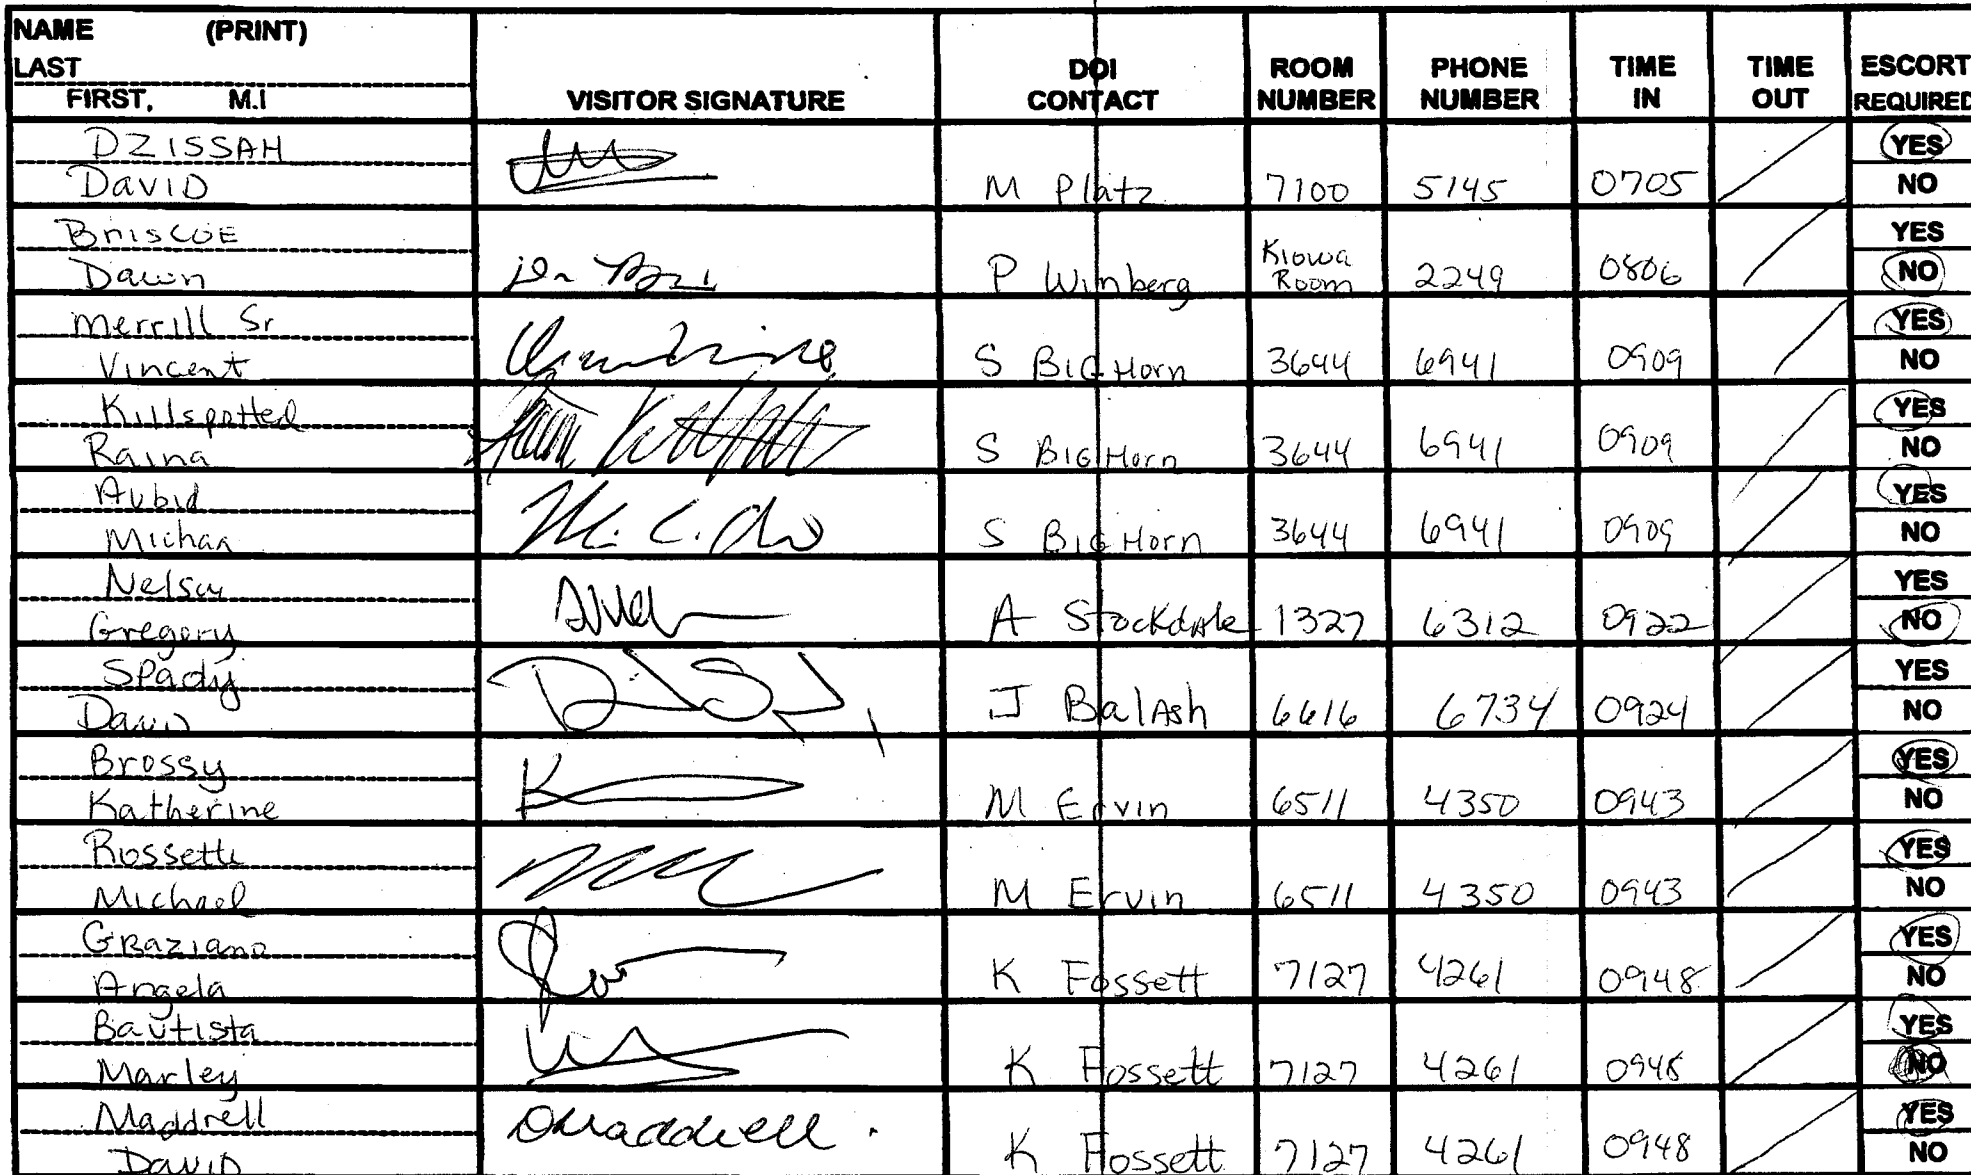 NAME (PRINT)
LAST
FIRST, M.I
VISITOR SIGNATURE
DOI CONTACT
ROOM NUMBER
PHONE NUMBER
TIME IN
TIME OUT
ESCORT REQUIRED
DZISSAH
DAVID
M Platz 7100 5145 0705
YES
NO
BRISCOE
Dawn
P Winberg Kiowa Room 2249 0806
YES
NO
Merrill Sr
Vincent
S BIGHorn 3644 6941 0909
YES
NO
Killspotted
Raina
S BIGHorn 3644 6941 0909
YES
NO
Aubid
Michaa
S BIGHorn 3644 6941 0909
YES
NO
Nelson
Gregory
A Stockdale 1327 6312 0922
YES
NO
Spady
David
J BalAsh 6616 6734 0924
YES
NO
Brossy
Katherine
M Ervin 6511 4350 0943
YES
NO
Rossetti
Michael
M Ervin 6511 4350 0943
YES
NO
GRAZIANO
Angela
K Fossett 7127 4261 0948
YES
NO
Bautista
Marley
K Fossett 7127 4261 0948
YES
NO
Maddrell
DAVID
Dmaddrell.
K Fossett 7127 4261 0948
YES
NO